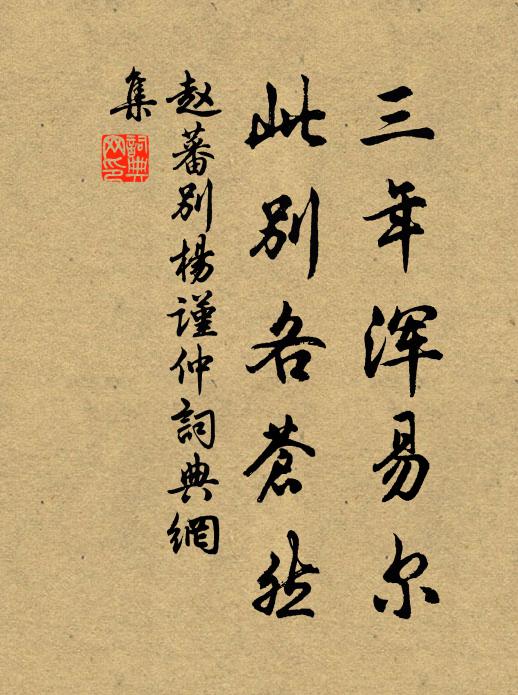 三年浑易尔
此别各苍然
赵蕃别杨谨仲詞典網
集
詞典
网印